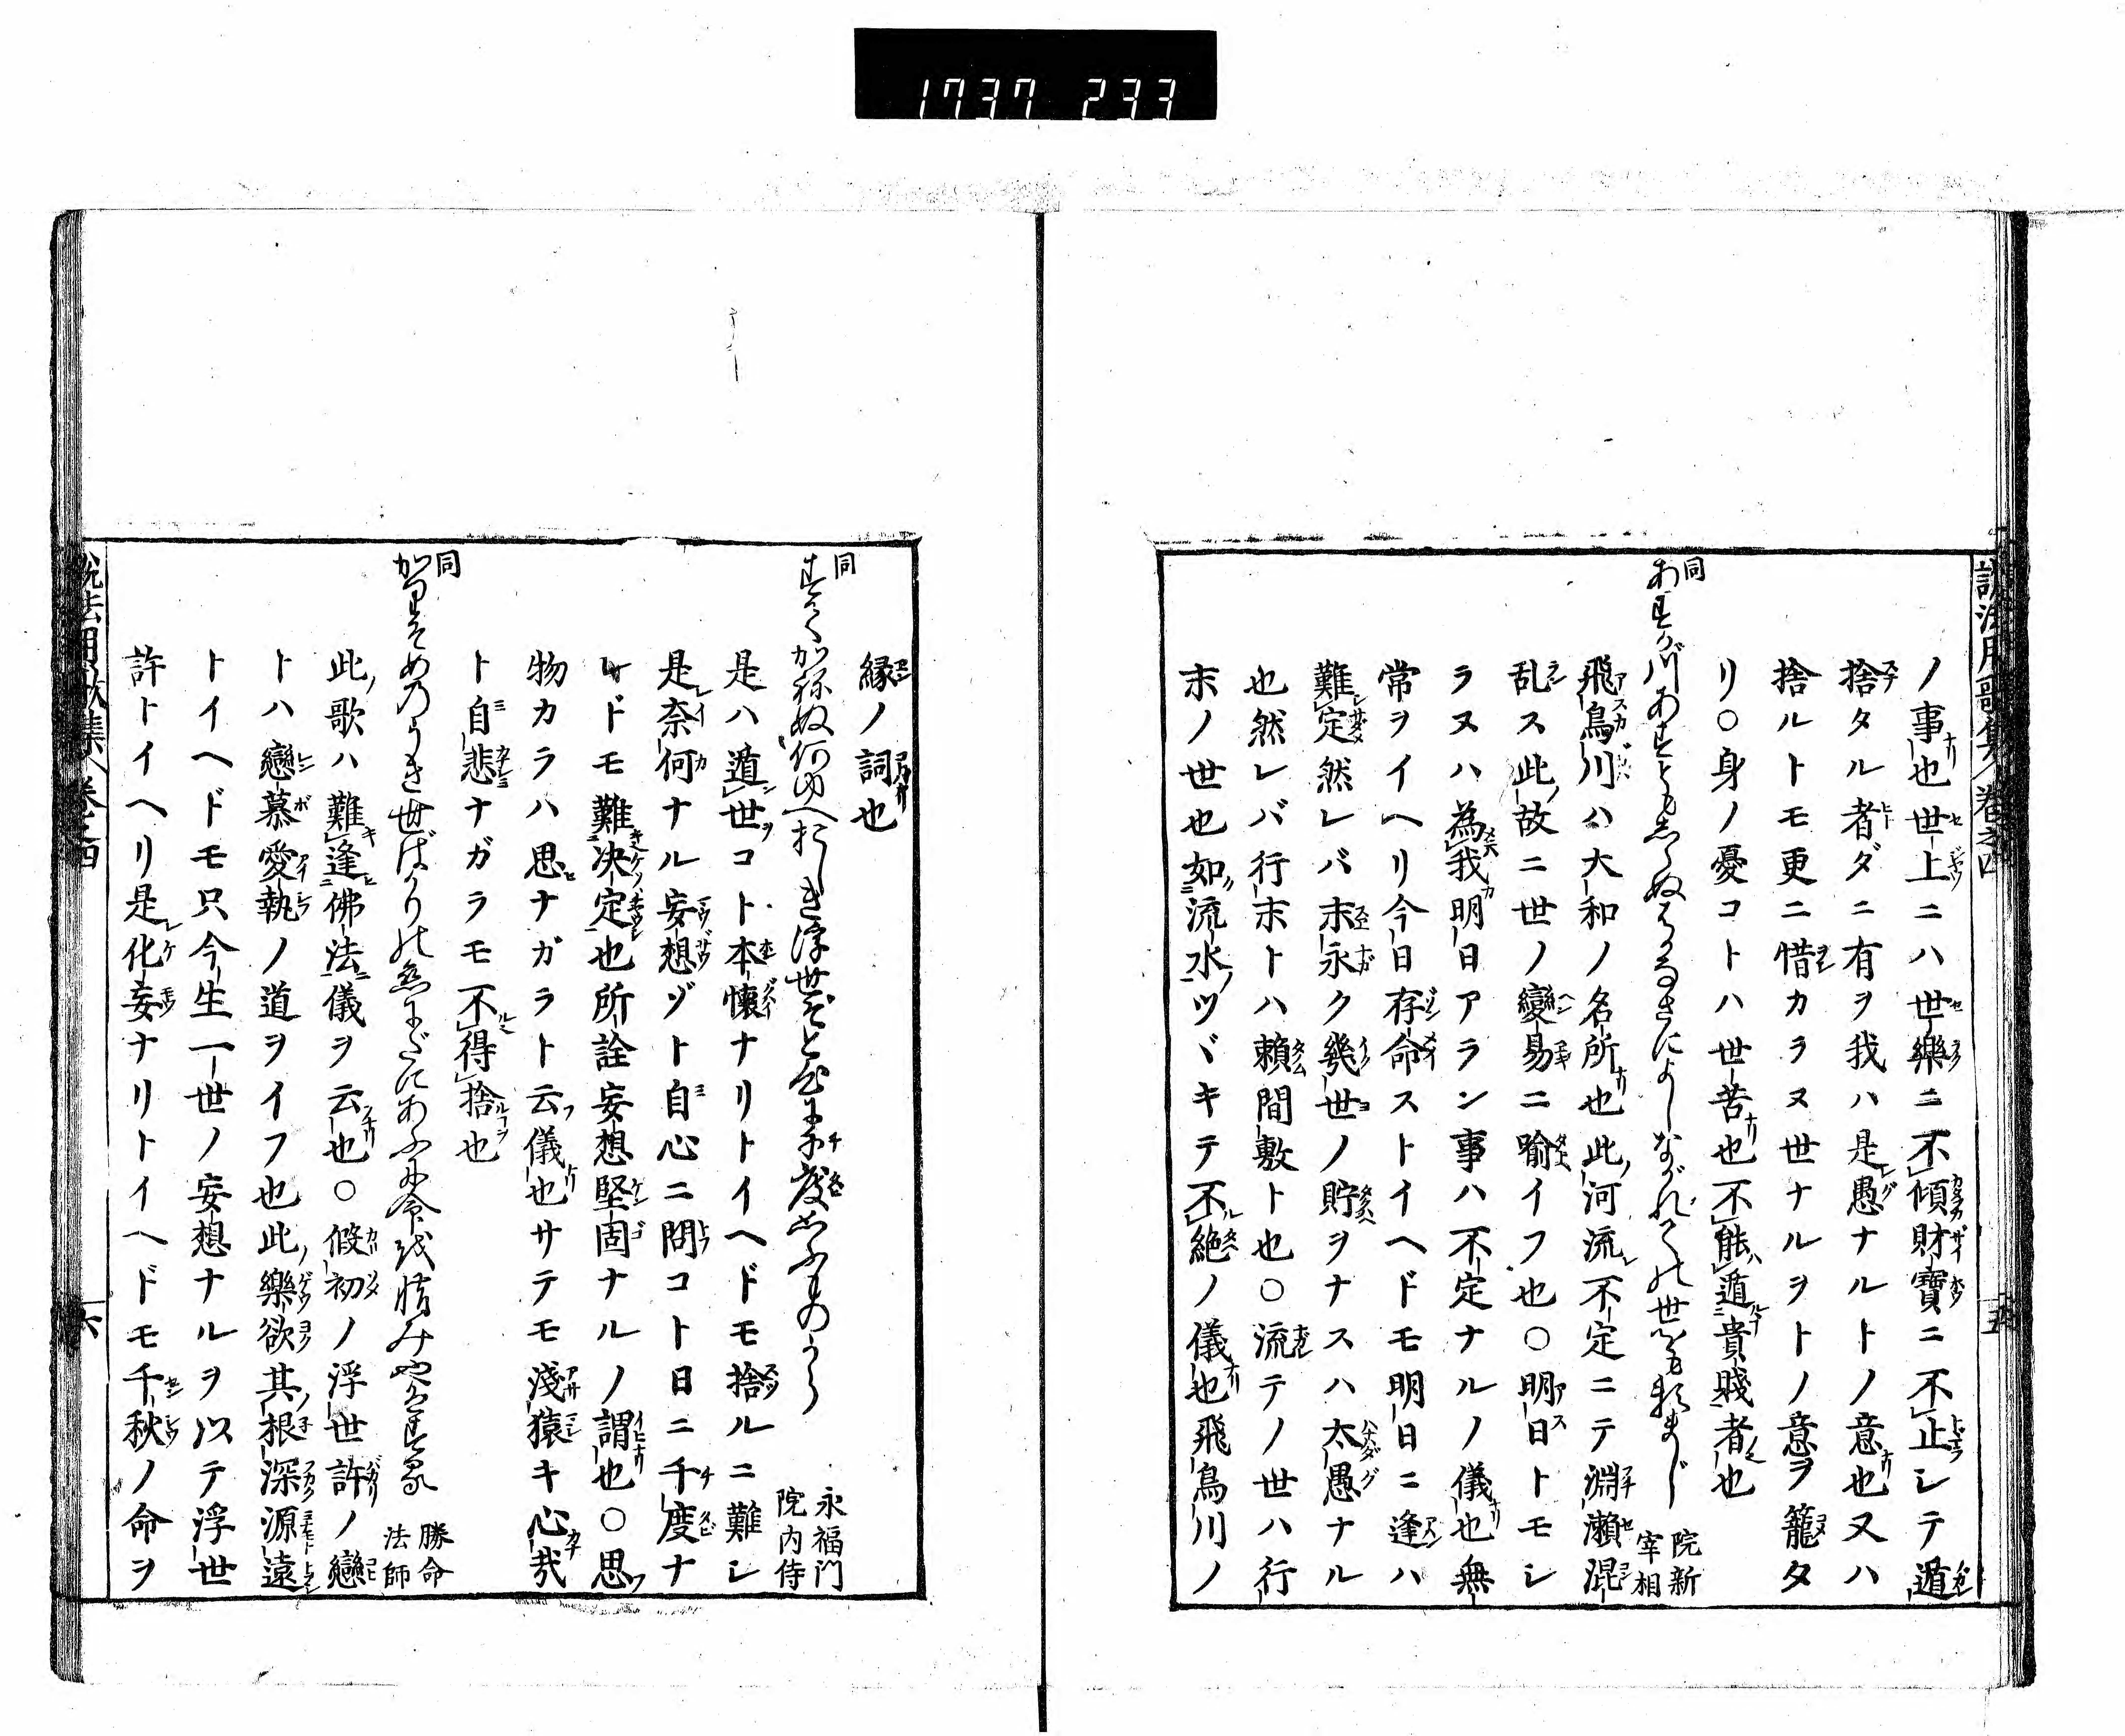 1737 233
説法用歌集 巻之四 五
ノ事也世上ニハ世樂ニ不傾財寶ニ不止シテ遁
捨タル者ダニ有ヲ我ハ是愚ナルトノ意也又ハ
捨ルトモ更ニ惜カラヌ世ナルヲトノ意ヲ籠タ
リ○身ノ憂コトハ世苦也不能遁貴賤者也
同
あすか川あすともしらぬはかなさによしながれての世をも頼まじ
院新宰相
飛鳥川ハ大和ノ名所也此河流不定ニテ淵瀬混
乱ス此故ニ世ノ變易ニ喩イフ也○明日トモシ
ラヌハ為我明日アラン事ハ不定ナルノ儀也無
常ヲイヘリ今日存命ストイヘドモ明日ニ逢ハ
難定然レバ末永ク幾世ノ貯ヲナスハ太愚ナル
也然レバ行末トハ頼間敷ト也○流テノ世ハ行
末ノ世也如流水ツヾキテ不絶ノ儀也飛鳥川ノ
縁ノ詞也
同
すてかねぬ何ゆへおしき浮世ぞと心に千度とふものから
永福門院内侍
是ハ遁世コト本懐ナリトイヘドモ捨ルニ難シ
是奈何ナル妄想ゾト自心ニ問コト日ニ千度ナ
レドモ難决定也所詮妄想堅固ナルノ謂也○思
物カラハ思ナガラト云儀也サテモ淺猿キ心哉
ト自悲ナガラモ不得捨也
同
かりそめのうき世ばかりの恋にだにあふに命を惜みやはする
勝命法師
此歌ハ難逢佛法儀ヲ云也○假初ノ浮世許ノ戀
トハ戀慕愛執ノ道ヲイフ也此樂欲其根深源遠
トイヘドモ只今生一世ノ妄想ナルヲ以テ浮世
許トイヘリ是化妄ナリトイヘドモ千秋ノ命ヲ
説法用歌集 巻之四 六